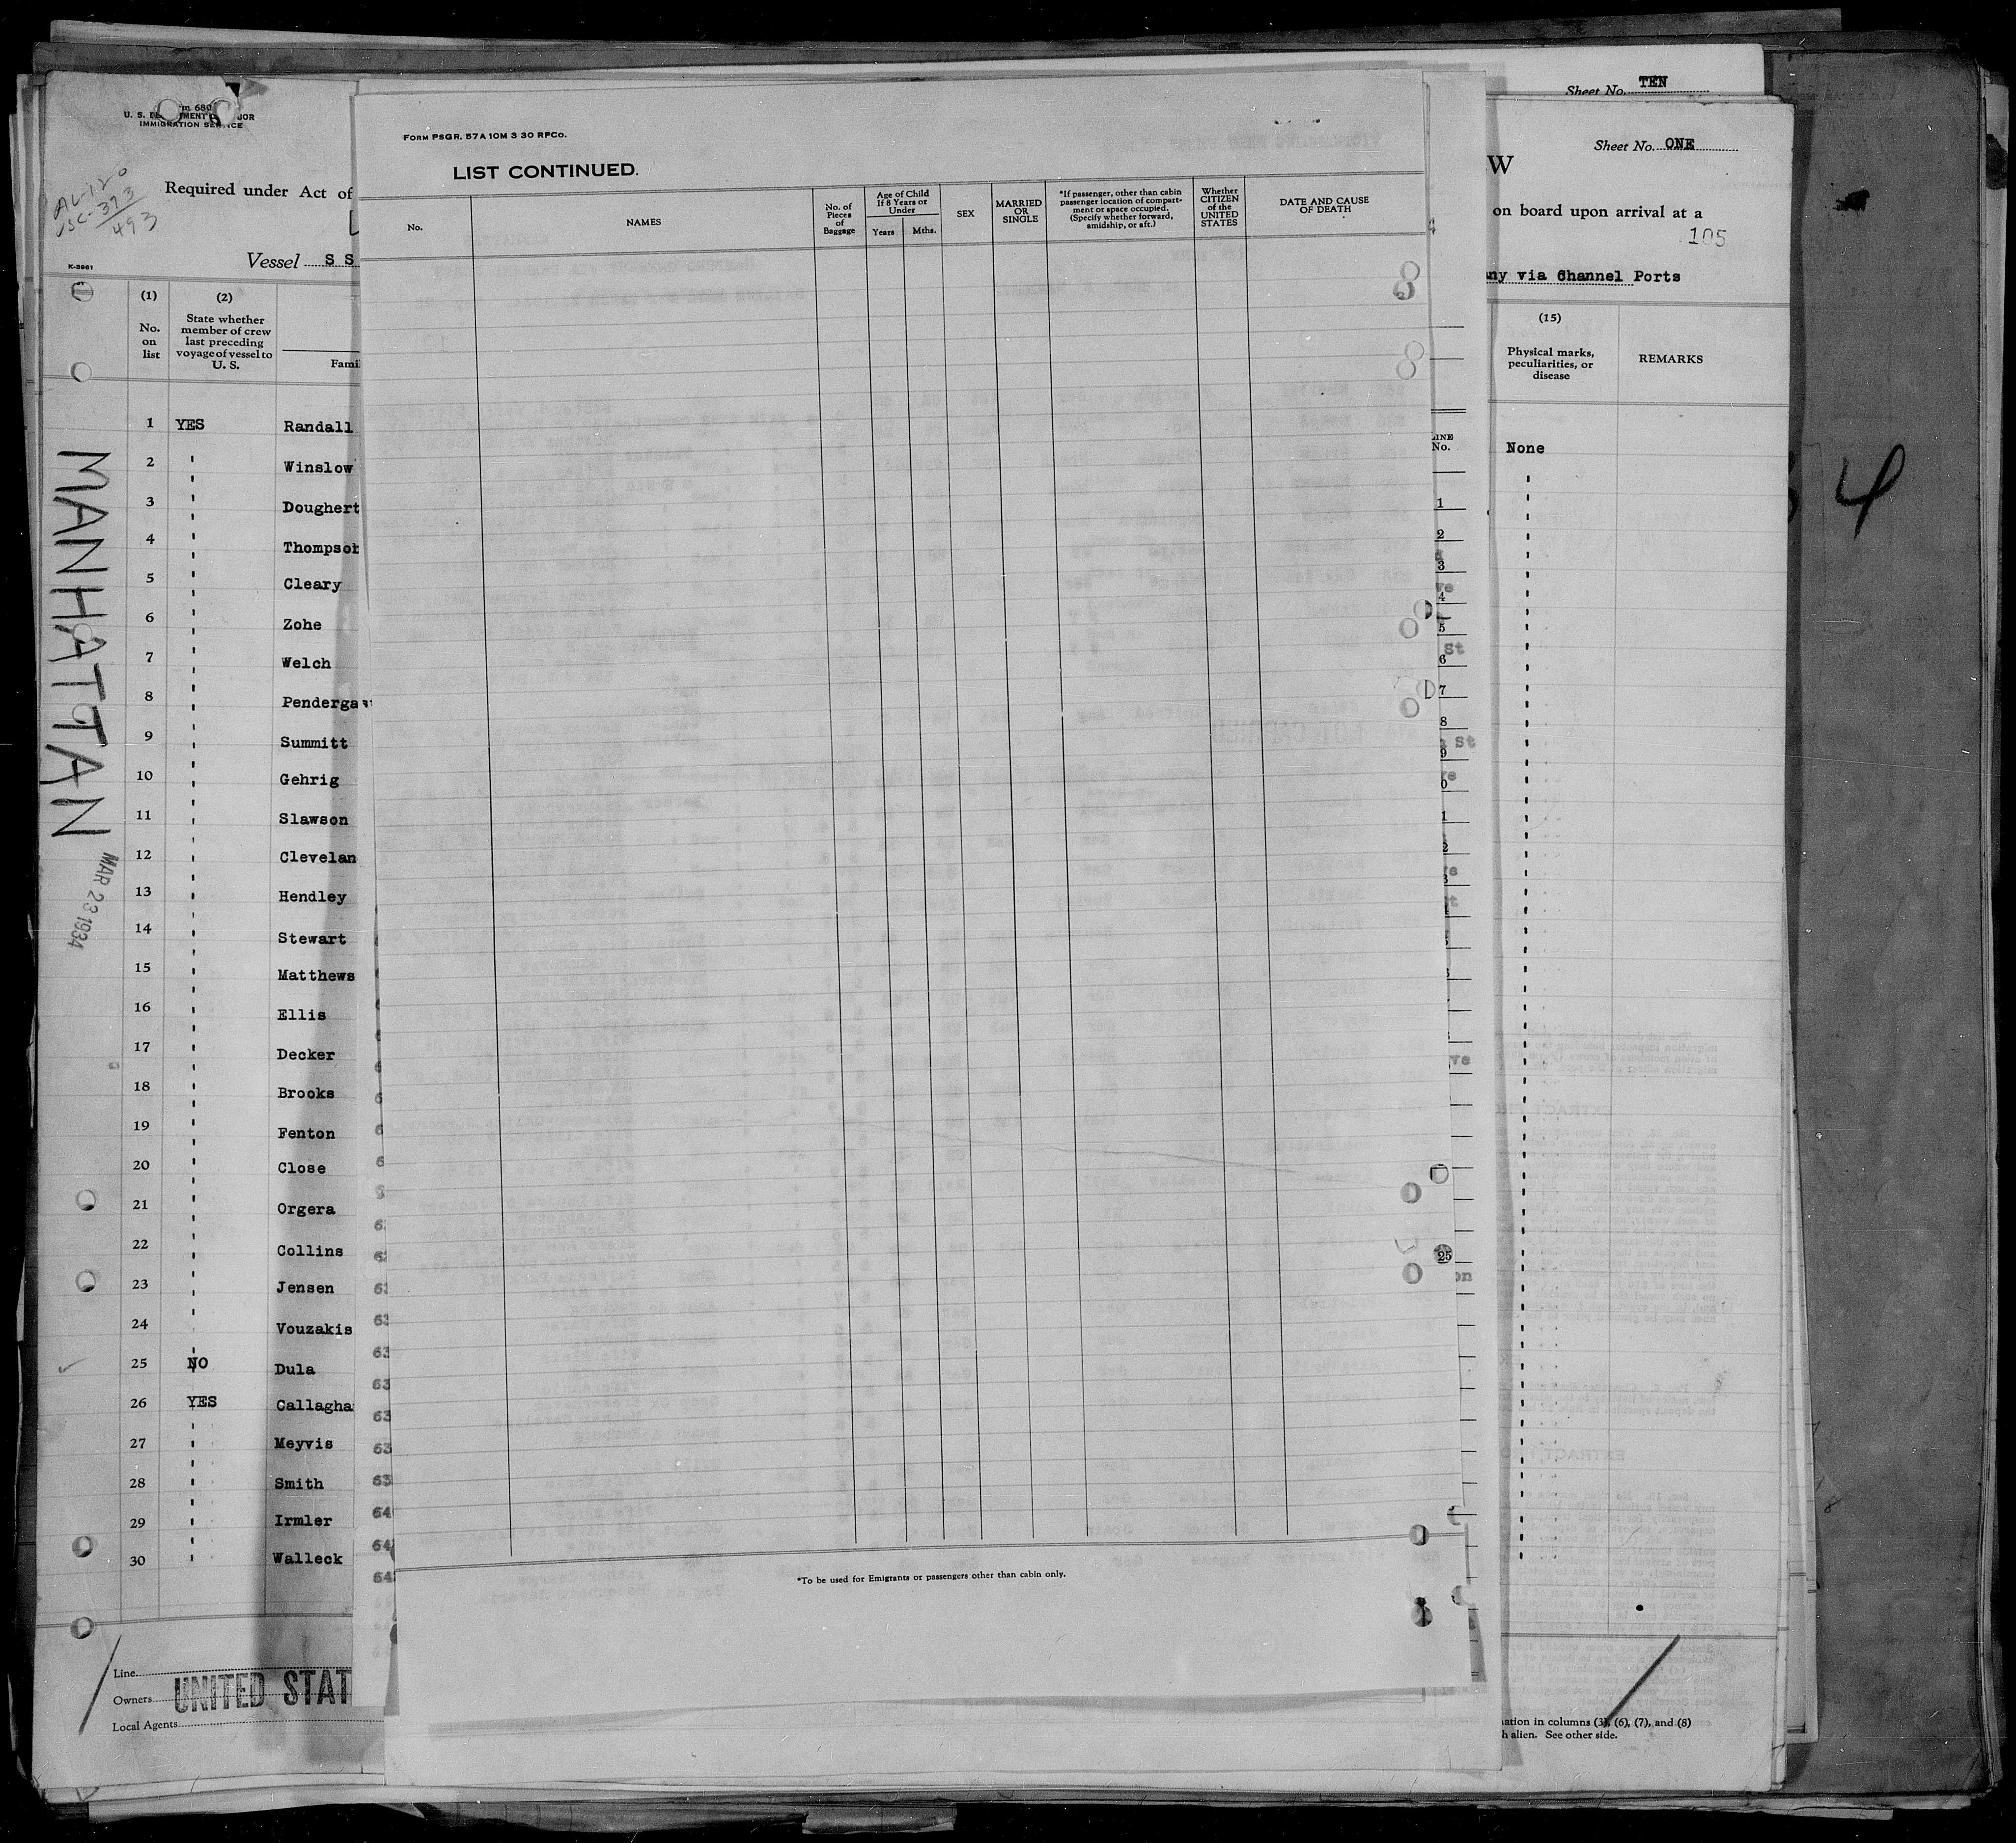 m 680
U. S. D MENT OR
IMMIGRATION SERVICE
AL-120
USC-373
493
Required under Act of
K-3961
Vessel S S
(1)
No.
on
list
(2)
State whether
member of crew
last preceding
voyage of vessel to
U. S.
Fami
1 YES Randall
2 " Winslow
3 " Doughert
4 " Thompson
5 " Cleary
6 " Zohe
7 " Welch
8 " Pendergast
9 " Summitt
10 " Gehrig
11 " Slawson
12 " Clevelan
13 " Hendley
14 " Stewart
15 " Matthews
16 " Ellis
17 " Decker
18 " Brooks
19 " Fenton
20 " Close
21 " Orgera
22 " Collins
23 " Jensen
24 " Vouzakis
25 NO Dula
26 YES Callagha
27 " Meyvis
28 " Smith
29 " Irmler
30 " Walleck
MANHATTAN
MAR 23 1934
Line
Owners UNITED STAT
Local Agents
FORM PSGR. 57A 10M 3 30 RPCo.
LIST CONTINUED.
No.
NAMES
No. of
Pieces
of
Baggage
Age of Child
If 8 Years or
Under
Years Mths.
SEX
MARRIED
OR
SINGLE
*If passenger, other than cabin
passenger location of compart-
ment or space occupied.
(Specify whether forward,
amidship, or aft.)
Whether
CITIZEN
of the
UNITED
STATES
DATE AND CAUSE
OF DEATH
*To be used for Emigrants or passengers other than cabin only.
LINE
No.
1
2
3
4
5
6
7
8
9
0
1
2
25
Sheet No. TEN
Sheet No. ONE
W
on board upon arrival at a
105
ny via Channel Ports
(15)
Physical marks,
peculiarities, or
disease
REMARKS
None
4
ation in columns (3), (6), (7), and (8)
h alien. See other side.